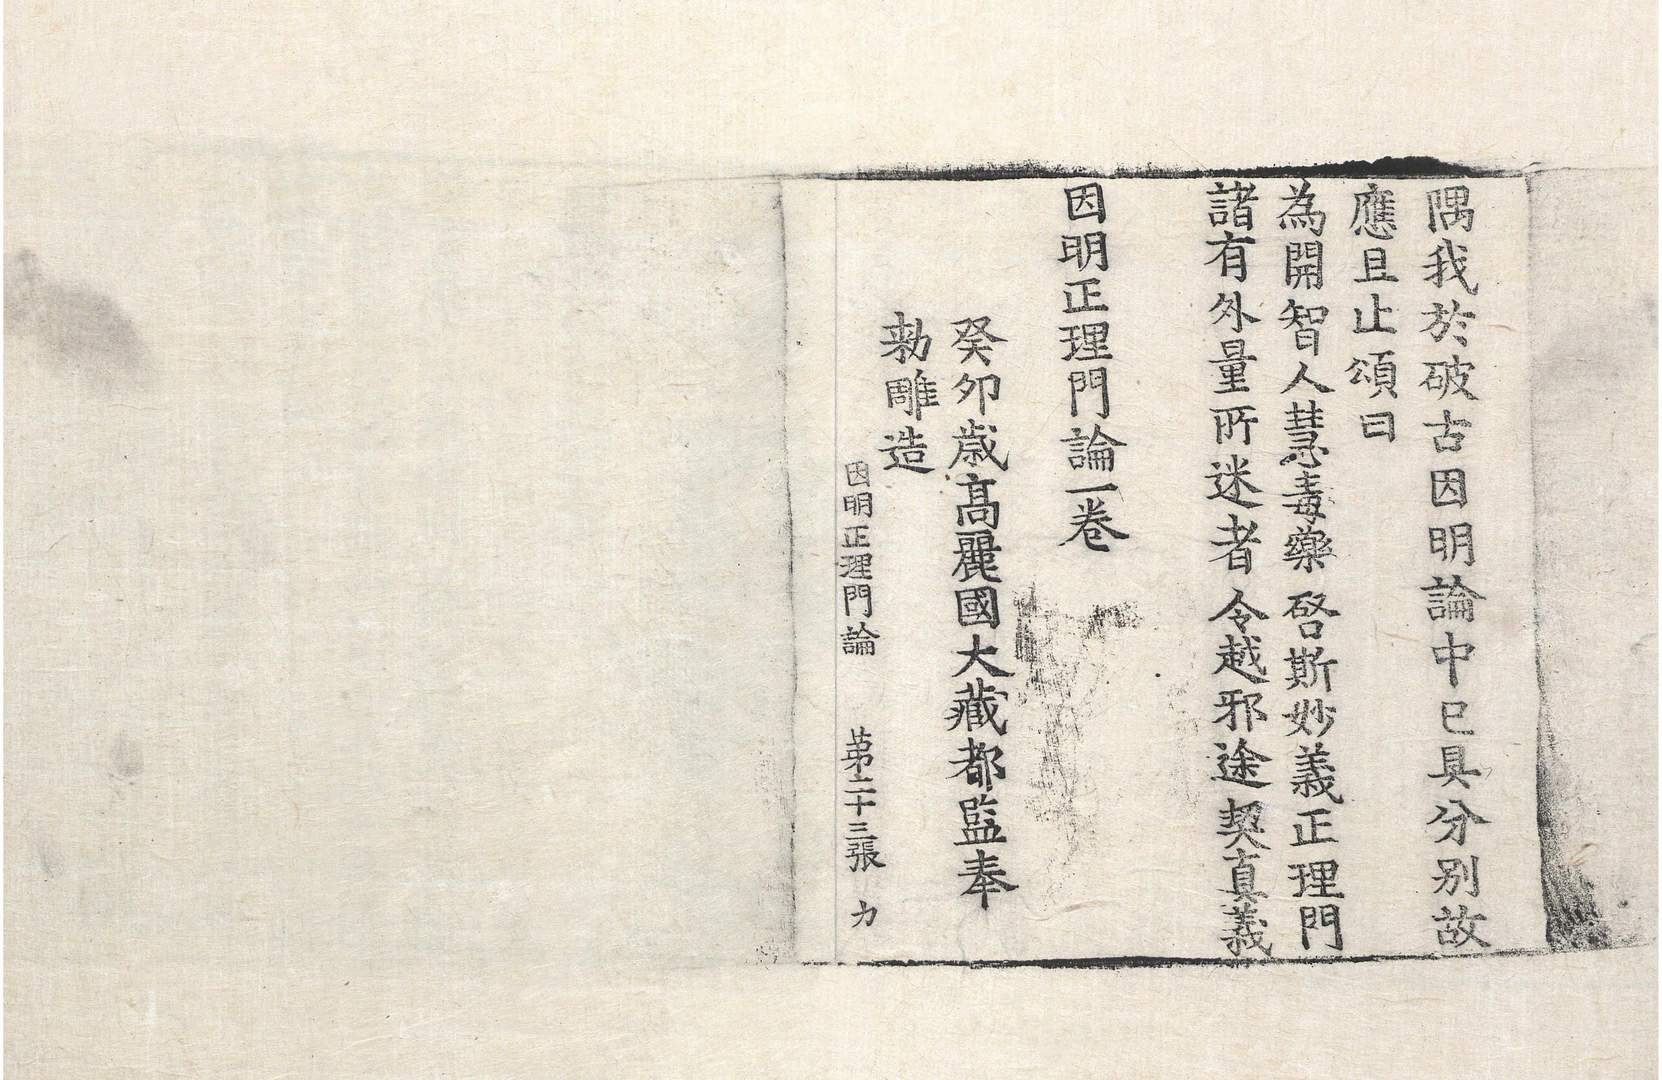 隅我於破古因明論中已具分別故
應且止頌曰
為開智人慧毒藥 啓斯妙義正理門
諸有外量所迷者 令越邪途契真義
因明正理門論一卷
癸卯歲高麗國大藏都監奉
勅雕造
因明正理門論 第二十三張 力